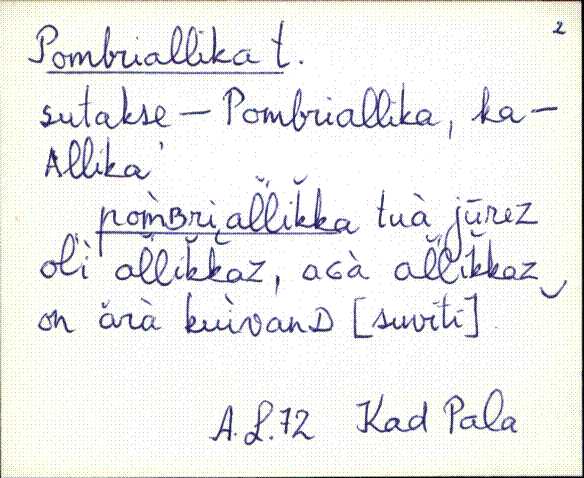 2
Pombriallika t.
sutakse – Pombriallika, ka –
Allika'
pom̀ʙri ̮al̆lĭkka tuà jūrez
oĺì al̆lĭkkaz, aɢà al̆lĭkkaz
on ărà kuìvanᴅ [suviti]
A.L.72 Kad Pala